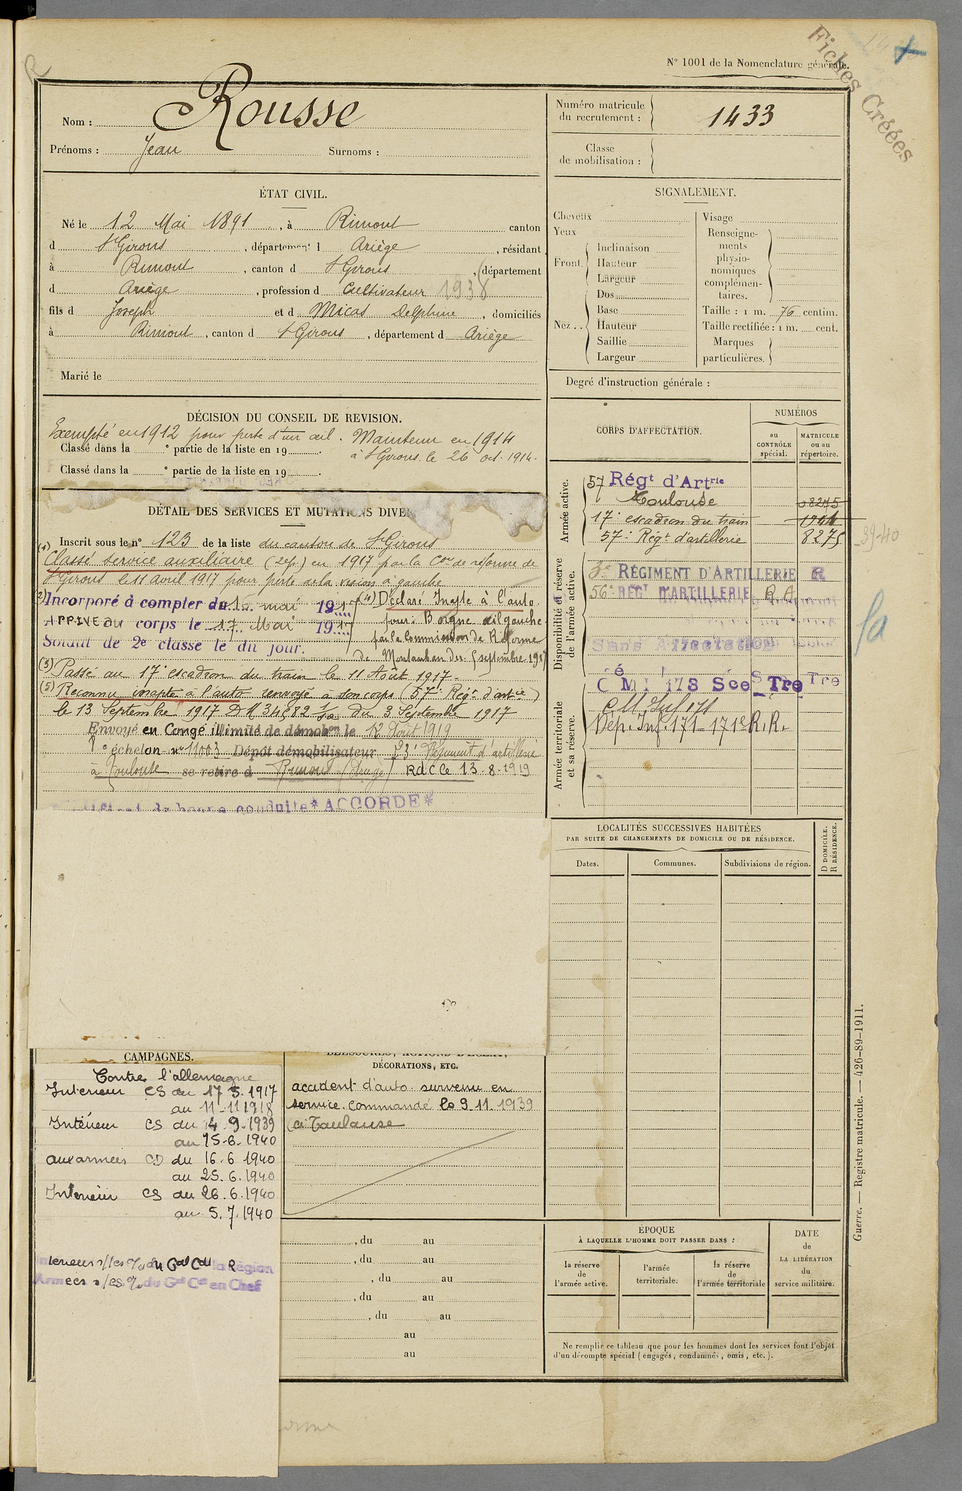 Fiches Créées
N° 1001 de la Nomenclature générale.
Nom : Rousse
Prénoms : Jean Surnoms :
Numéro matricule du recrutement : 1433
Classe de mobilisation :
ÉTAT CIVIL.
Né le 12 Mai 1891, à Rimont canton
d St Girons, département d Ariège, résidant
à Rimont, canton d St Girons, département
d Ariège, profession d Cultivateur 1938
fils d Joseph et d Micas Delphine, domiciliés
à Rimont, canton d St Girons, département d Ariège
Marié le
SIGNALEMENT.
Cheveux
Yeux
Front
Inclinaison
Hauteur
Largeur
Nez
Dos
Base
Hauteur
Saillie
Largeur
Visage
Renseignements physionomiques complémentaires.
Taille : 1 m. 76 centim.
Taille rectifiée : 1 m. cent.
Marques particulières.
Degré d'instruction générale :
DÉCISION DU CONSEIL DE REVISION.
Exempté en 1912 pour perte d'un œil. Maintenu en 1914
Classé dans la ° partie de la liste en 19 . à St Girons le 26 oct. 1914.
Classé dans la ° partie de la liste en 19 .
DÉTAIL DES SERVICES ET MUTATIONS DIVE
(1) Inscrit sous le n° 123 de la liste du canton de St Girons
Classé service auxiliaire en 1917 par la Con de réforme de
St Girons le 11 avril 1917 pour perte de la vision à gauche
(2) Incorporé à compter du 15 mai 1917
ARRIVE au corps le 17 Mai 1917
Soldat de 2e classe le dit jour.
(4) Déclaré Inapte à l'auto
pour : Borgne œil gauche
par la Commission de Réforme
de Montauban du 5 septembre 1917
(3) Passé au 17e escadron du train le 11 Août 1917.
(5) Reconnu inapte à l'auto renvoyé à son corps (57e Régt d'artie)
le 13 Septembre 1917 D.M 34,882 du 3 Septembre 1917
Envoyé en Congé illimité de démobon le 12 Août 1919
échelon n° 11003 Dépôt démobilisateur 23e Régiment d'artillerie
à Toulouse se retire à Rimont (Ariège) RdC le 13-8-1919
de bonne conduite *ACCORDÉ*
CORPS D'AFFECTATION.
NUMÉROS
au CONTRÔLE spécial.
MATRICULE ou au répertoire.
Armée active.
57 Régt d'Artrie
Toulouse 8275
17e escadron du train
57e Régt d'artillerie 8275
39-40
Disponibilité et réserve de l'armée active.
RÉGIMENT D'ARTILLERIE R
56e RÉGt D'ARTILLERIE
Sans Affectation
Armée territoriale et sa réserve.
C M I 173 Sce Tre
Dép. Inf. 171 - 171e R.R.
LOCALITÉS SUCCESSIVES HABITÉES
PAR SUITE DE CHANGEMENTS DE DOMICILE OU DE RÉSIDENCE.
Dates. Communes. Subdivisions de région.
D DOMICILE. R RÉSIDENCE.
CAMPAGNES.
Contre l'allemagne
Intérieur CS du 17 5. 1917
au 11-11 1918
Intérieur CS du 14-9-1939
au 15-6-1940
aux armées CD du 16.6 1940
au 25.6.1940
Intérieur CS du 26.6.1940
au 5.7.1940
BLESSURES, ACTIONS D'ÉCLAT,
DÉCORATIONS, ETC.
accident d'auto survenu en
service commandé le 9.11.1939
à Toulouse
, du au
, du au
, du au
, du au
, du au
au
au
ÉPOQUE
À LAQUELLE L'HOMME DOIT PASSER DANS :
la réserve de l'armée active.
l'armée territoriale.
la réserve de l'armée territoriale
DATE de LA LIBÉRATION du service militaire.
Ne remplir ce tableau que pour les hommes dont les services font l'objet
d'un décompte spécial (engagés, condamnés, omis, etc.).
Guerre. — Registre matricule. — 426-89-1911.